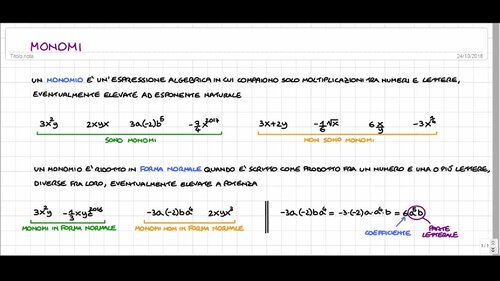 MONOMI
Titolo nota
24/10/2018
UN MONOMIO E' UN'ESPRESSIONE ALGEBRICA IN CUI COMPAIONO SOLO MOLTIPLICAZIONI TRA NUMERI E LETTERE,
EVENTUALMENTE ELEVATE AD ESPONENTE NATURALE
3x²y 2xyx 3a(-2)b⁵ -3/4 x²⁰¹⁷ 3x+2y -1/6 √x 6 x/y
SONO MONOMI NON SONO MONOMI
UN MONOMIO E' RIDOTTO IN FORMA NORMALE QUANDO E' SCRITTO COME PRODOTTO FRA UN NUMERO E UNA O PIÚ LETTERE,
DIVERSE FRA LORO, EVENTUALMENTE ELEVATE A POTENZA
3x²y -1/3 xy²⁰¹⁶ -3a(-2)ba⁴ 2xyx³ -3a(-2)ba⁴ = -3·(-2)a·a⁴·b = 6a⁵b
MONOMI IN FORMA NORMALE MONOMI NON IN FORMA NORMALE COEFFICIENTE PARTE
LETTERALE
1/1